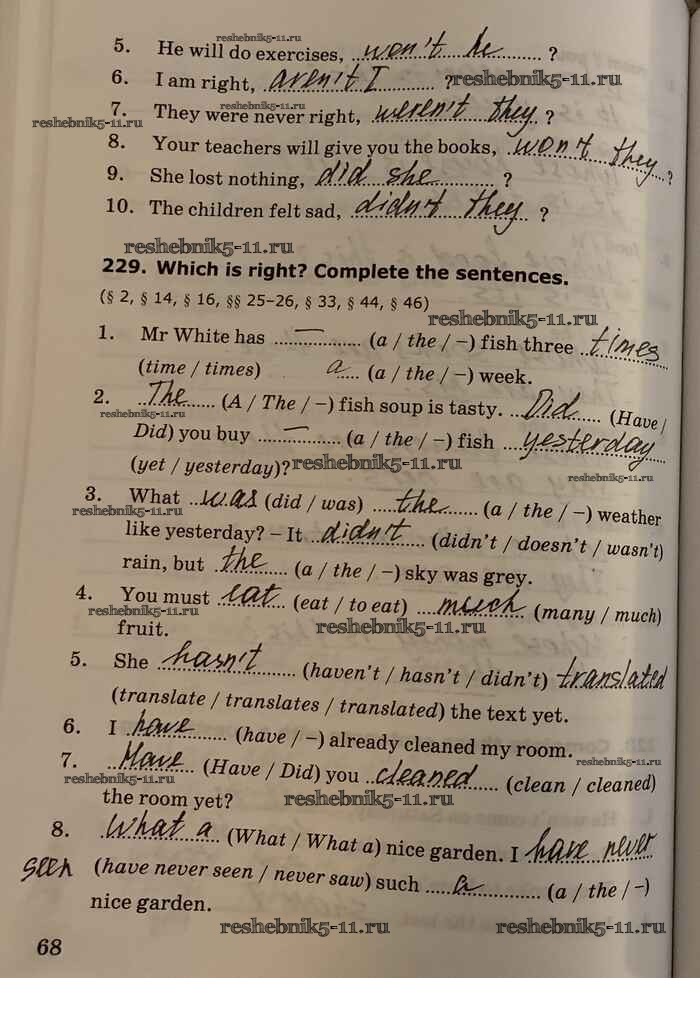 reshebnik5-11.ru
5. He will do exercises, won't he ?
6. I am right, aren't I ? reshebnik5-11.ru
reshebnik5-11.ru
7. They were never right, weren't they ?
reshebnik5-11.ru
8. Your teachers will give you the books, won't they ?
9. She lost nothing, did she ?
10. The children felt sad, didn't they ?
reshebnik5-11.ru
229. Which is right? Complete the sentences.
(§ 2, § 14, § 16, §§ 25–26, § 33, § 44, § 46)
reshebnik5-11.ru
1. Mr White has – (a / the / –) fish three times
(time / times) a (a / the / –) week.
2. The (A / The / –) fish soup is tasty. Did (Have /
reshebnik5-11.ru
Did) you buy – (a / the / –) fish yesterday
(yet / yesterday)? reshebnik5-11.ru
reshebnik5-11.ru
3. What was (did / was) the (a / the / –) weather
reshebnik5-11.ru
like yesterday? – It didn't (didn't / doesn't / wasn't)
rain, but the (a / the / –) sky was grey.
4. You must eat (eat / to eat) much (many / much)
reshebnik5-11.ru
fruit. reshebnik5-11.ru
5. She hasn't (haven't / hasn't / didn't) translated
(translate / translates / translated) the text yet.
6. I have (have / –) already cleaned my room.
reshebnik5-11.ru
7. Have (Have / Did) you cleaned (clean / cleaned)
reshebnik5-11.ru
the room yet? reshebnik5-11.ru
8. What a (What / What a) nice garden. I have never
seen (have never seen / never saw) such a (a / the / –)
nice garden.
reshebnik5-11.ru reshebnik5-11.ru
68